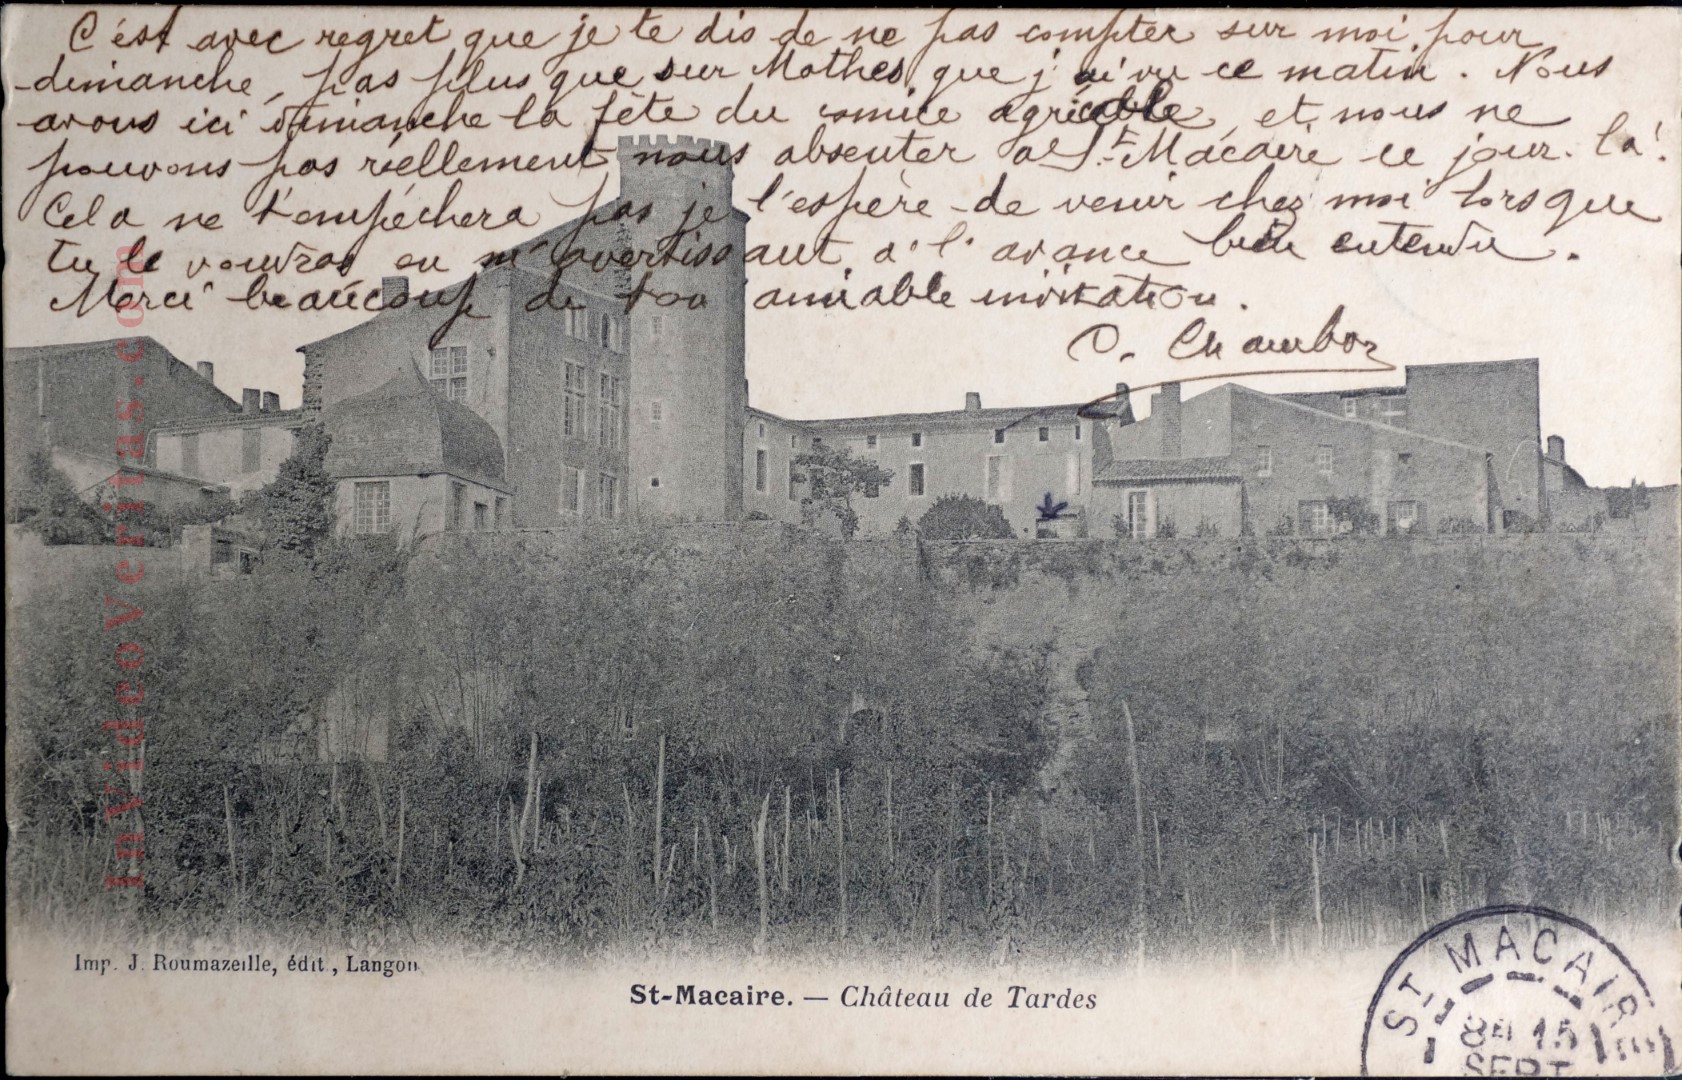 C'est avec regret que je te dis de ne pas compter sur moi pour
dimanche, pas plus que sur Mothes que j'ai vu ce matin. Nous
avons ici dimanche la fête du comice agricole, et nous ne
pouvons pas réellement nous absenter de St-Macaire ce jour-là.
Cela ne t'empêchera pas je l'espère de venir chez moi lorsque
tu le voudras en m'avertissant à l'avance bien entendu.
Merci beaucoup de ton aimable invitation.
C. Chambor
InVideoVeritas.com
Imp. J. Roumazeille, édit., Langon
St-Macaire. — Château de Tardes
ST MACAIRE
8H 15
SEPT